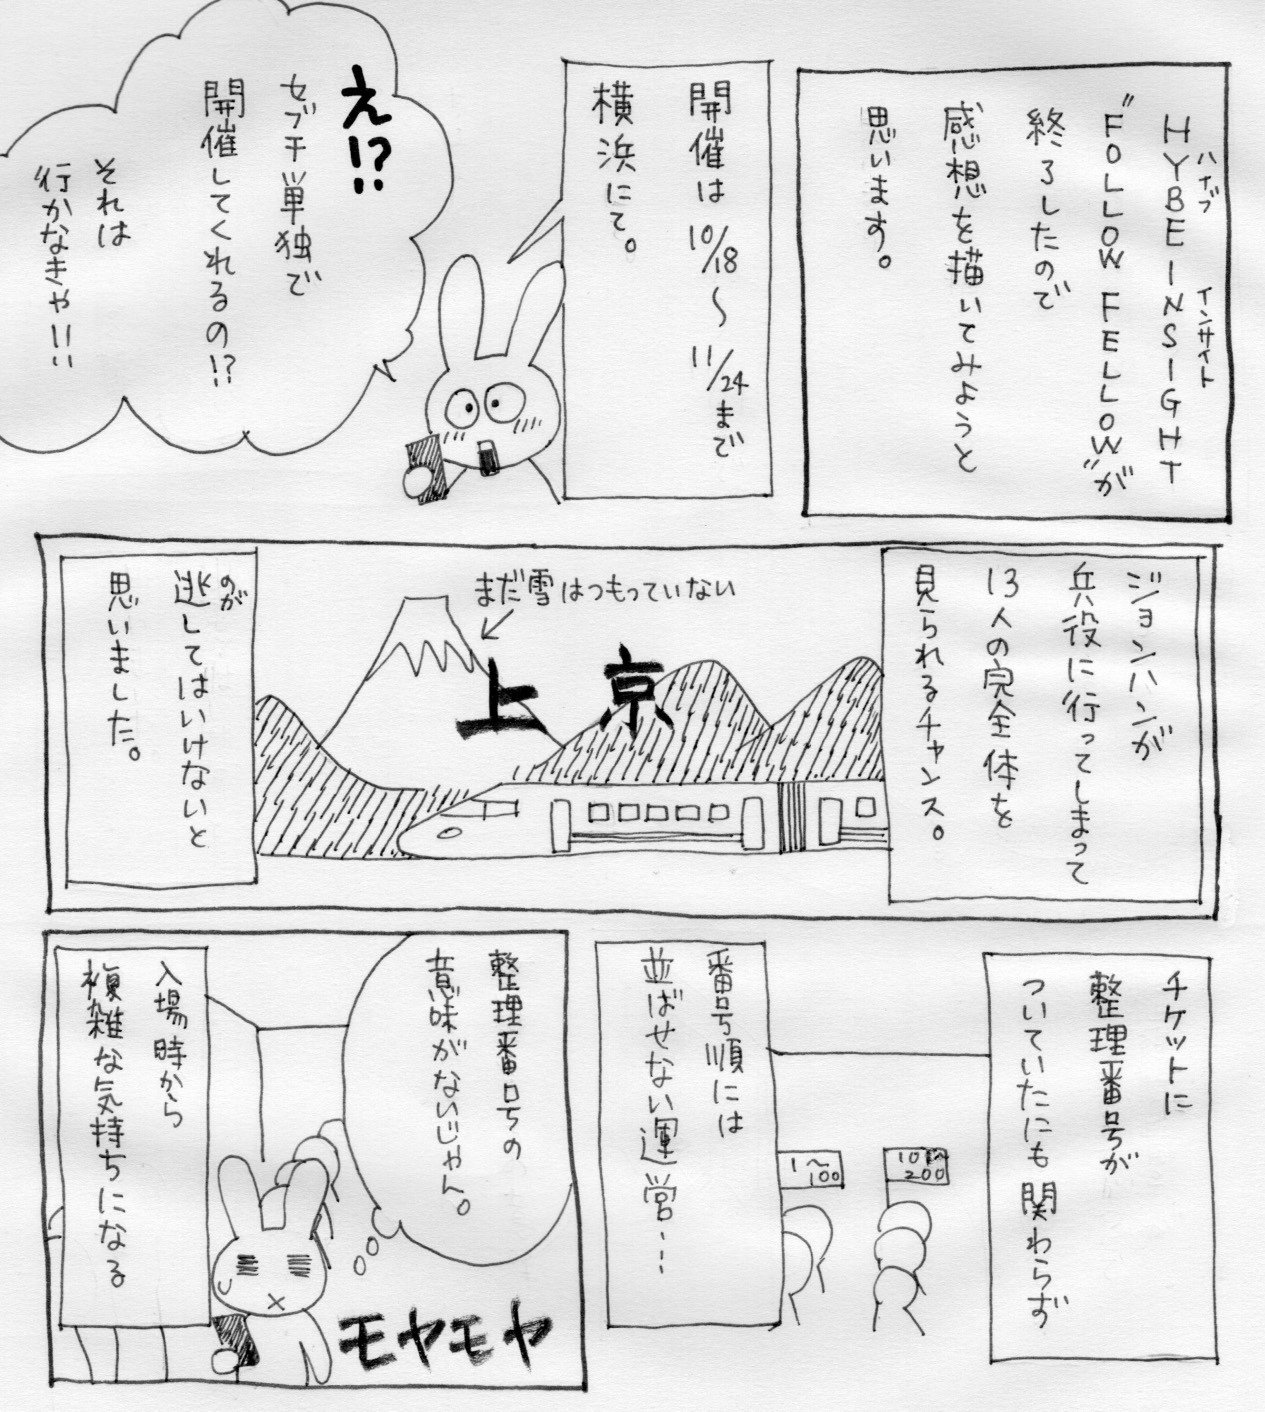 HYBE INSIGHT
ハイブ インサイト
"FOLLOW FELLOW"が
終了したので
感想を描いてみようと
思います。
開催は10/18〜11/24まで
横浜にて。
え!?
セブチ単独で
開催してくれるの!?
それは
行かなきゃ!!!
ジョンハンが
兵役に行ってしまって
13人の完全体を
見られるチャンス。
まだ雪はつもっていない
上京
逃してはいけないと
のが
思いました。
チケットに
整理番号が
ついていたにも関わらず
1〜
100
200
番号順には
並ばせない運営…
整理番号の
意味がないじゃん。
モヤモヤ
入場時から
複雑な気持ちになる